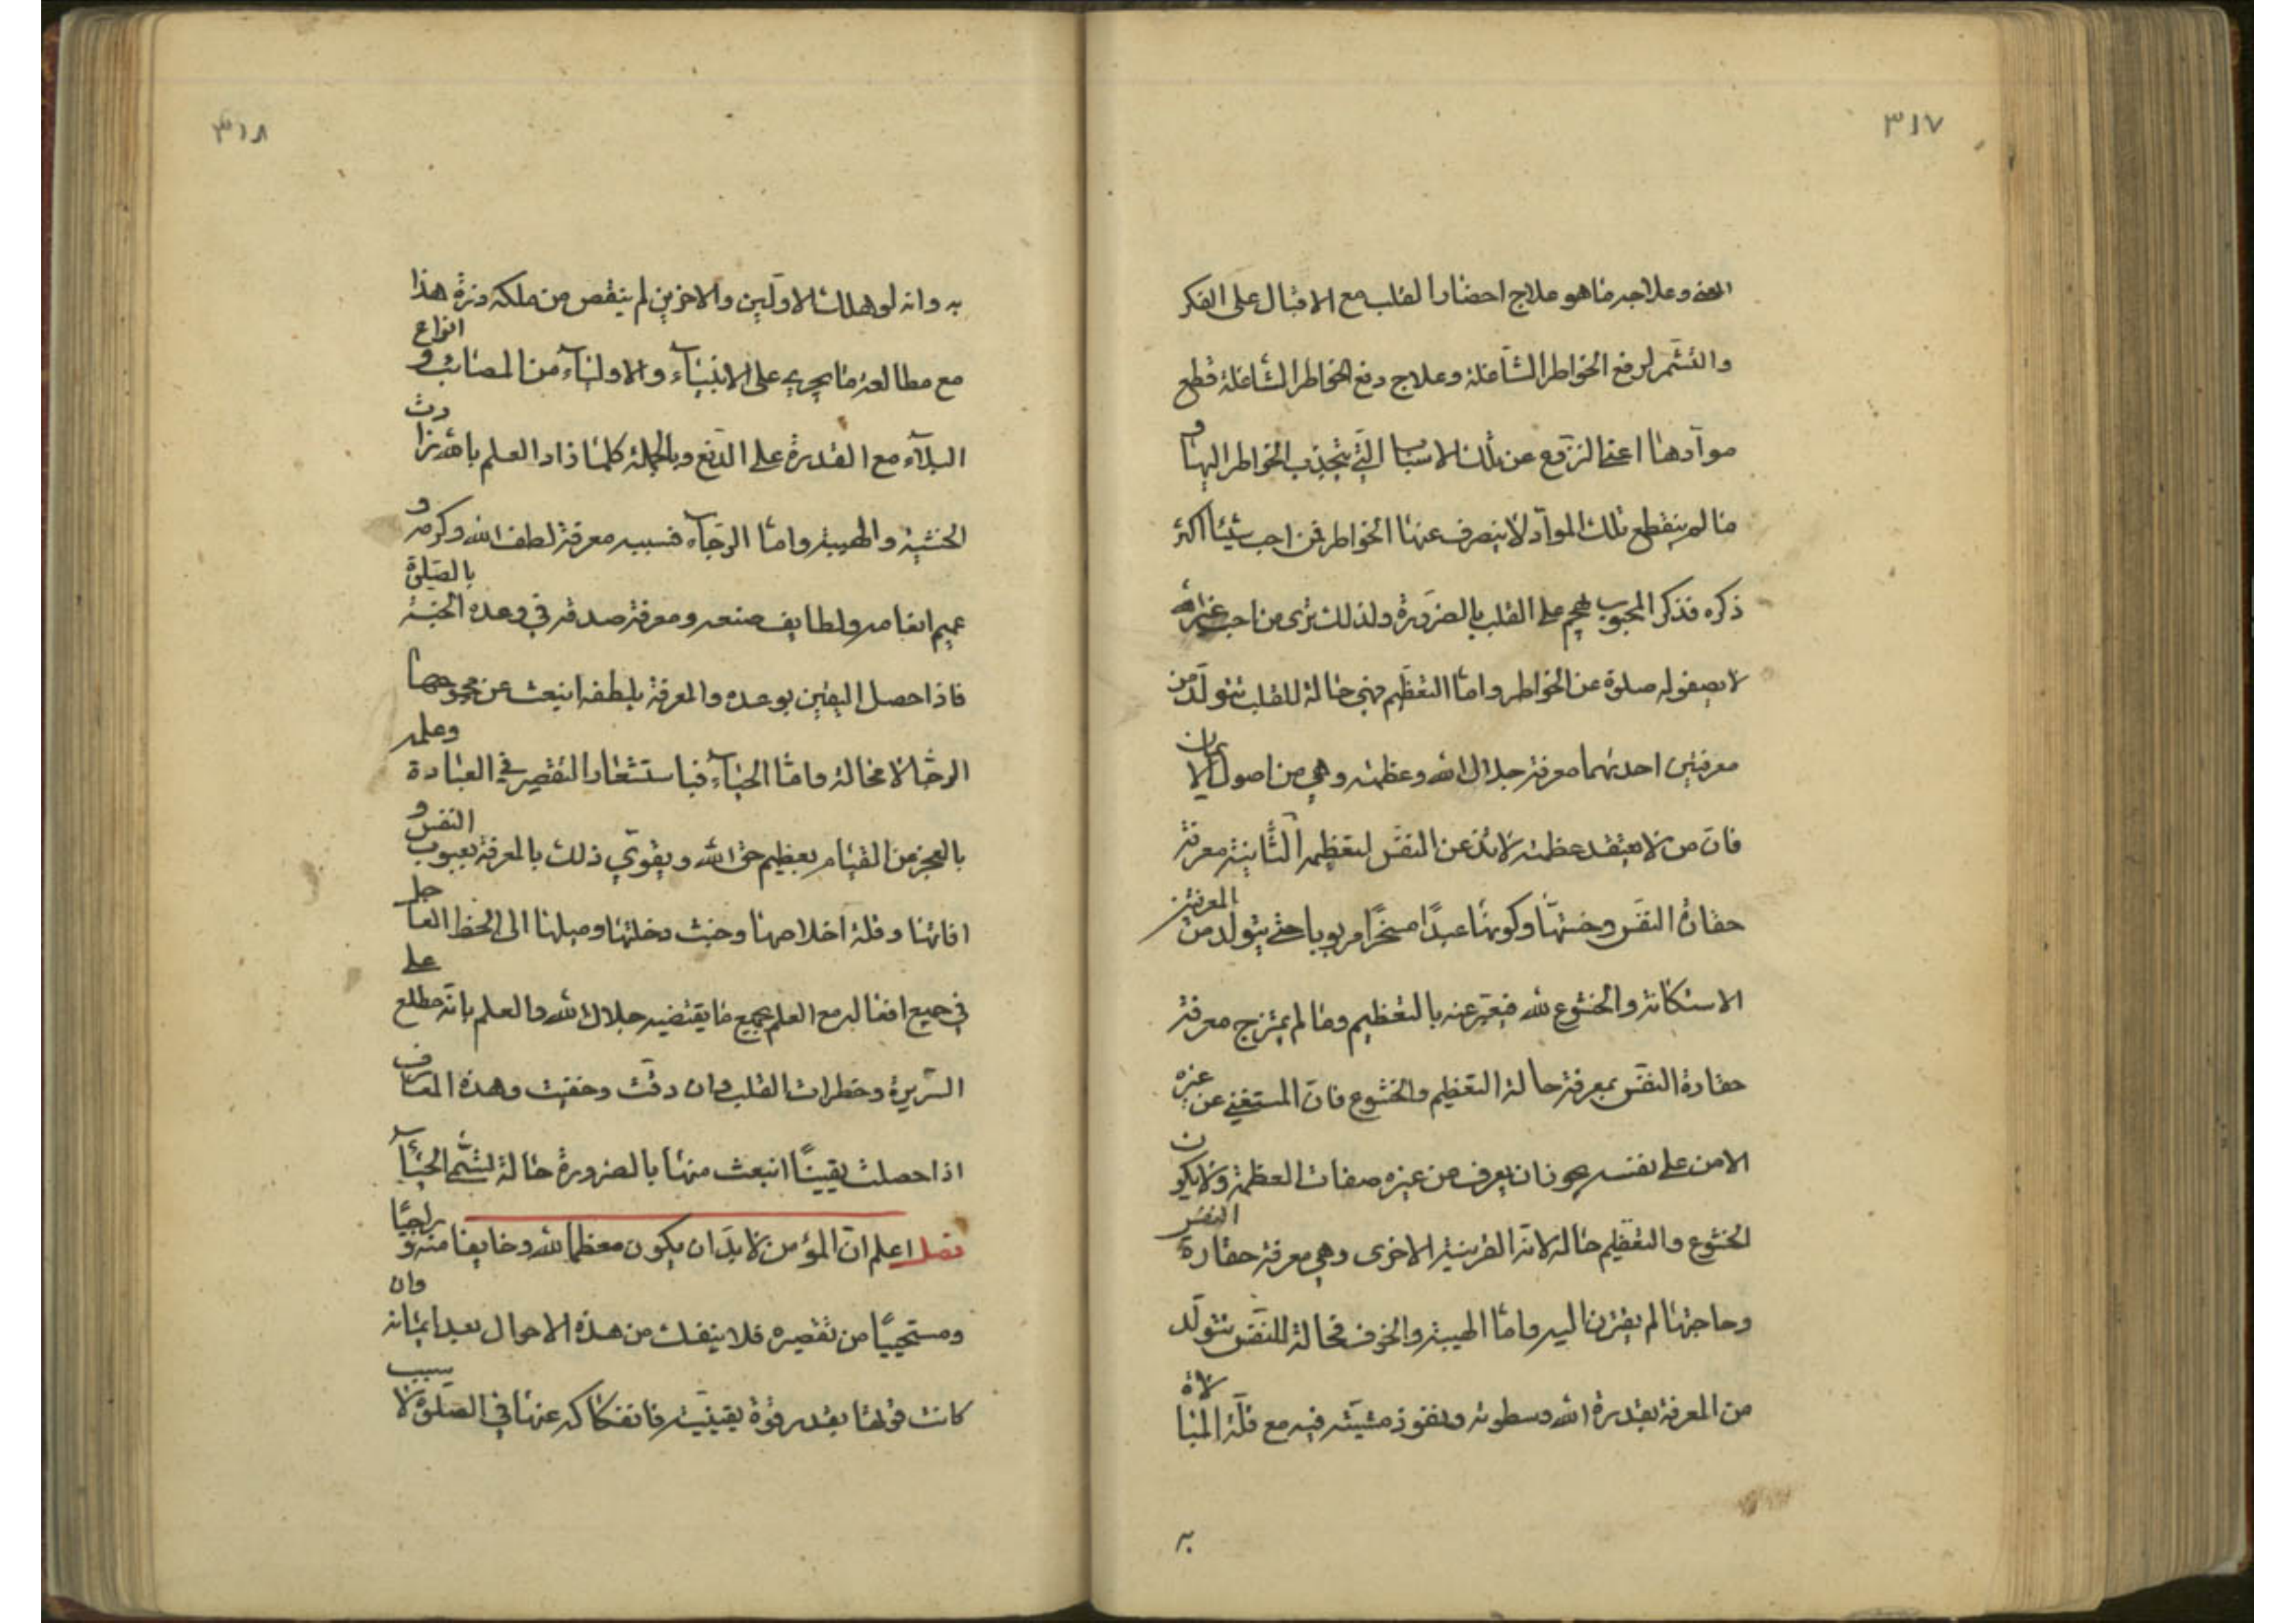 ٣١٧
المعنى وعلاجه ما هو علاج احضار القلب مع الاقبال على الفكر
والتشمّر لرفع الخواطر الشّاغلة وعلاج دفع الخواطر الشّاغلة قطع
موادّها اعنى النزوع عن تلك الاسباب الّتي تنجذب الخواطر اليها و
ما لم ينقطع تلك الموادّ لا ينصرف عنها الخواطر فمن احب شيئا اكثر
ذكره فذكر المحبوب يهجم على القلب بالضرورة ولذلك ترى من احب غير الله
لا يصفو له صلوة عن الخواطر وامّا التعظيم فهي حالة للقلب تتولّد من
معرفتين احديهما معرفة جلال الله وعظمته وهي من اصول الايمان
فانّ من لا يعتقد عظمته لا تذعن النفس لتعظيمه الثّانية معرفة
حقارة النفس وخسّتها وكونها عبدًا مسخّرًا مربوبا حتى يتولد من المعرفتين
الاستكانة والخشوع لله فيعبّر عنه بالتعظيم وما لم يمتزج معرفة
حقارة النفس بمعرفة حالة التعظيم والخشوع فانّ المستغني عن غيره
الامن على نفسه يجوز ان يعرف من غيره صفات العظمة ولا يكون
الخشوع والتعظيم حاله لانّ القرينة الاخرى وهي معرفة حقارة النفس
وحاجتها لم يقترن اليه وامّا الهيبة والخوف فحالة للنفس تتولّد
من المعرفة بقدرة الله وسطوته ونفوذ مشيّته فيه مع قلّة المبالاة
به
٣١٨
به وانه لو هلك الاوّلين والاخرين لم ينقص من ملكه ذرّة هذا
مع مطالعة ما يجري على الانبيآء والاوليآء من المصائب و انواع
البلآء مع القدرة على الدّفع وبالجملة كلما زاد العلم بالله زادت
الخشية والهيبة وامّا الرّجآء فسببه معرفة لطف الله وكرمه و
عميم انعامه ولطايف صنعه ومعرفة صدقه في وعده الجنّة بالصّلوة
فاذا حصل اليقين بوعده والمعرفة بلطفه انبعث عن مجموعهما
الرجا لا محالة وامّا الحيآء فباستشعار التقصير في العبادة وعلمه
بالعجز من القيام بعظيم حق الله ويقوّي ذلك بالمعرفة بعيوب النفس و
افاتها وقلة اخلاصها وخبث دخلتها وميلها الى الحظ العاجل
في جميع افعاله مع العلم بجميع ما يقتضيه جلال الله والعلم بانّه مطلع على
السّريرة وخطرات القلب وان دقّت وخفيت وهذه المعارف
اذا حصلت يقينًا انبعث منها بالضرورة حالة تسمّى الحيآء
فصل اعلم انّ المؤمن لا بدّ ان يكون معظما لله وخايفا منه و راجيًا
ومستحييًا من تقصيره فلا ينفك من هذه الاحوال بعد ايمانه وان
كانت قوتها بقدر قوّة يقينه فانفكاكه عنها في الصّلوة لا سبب